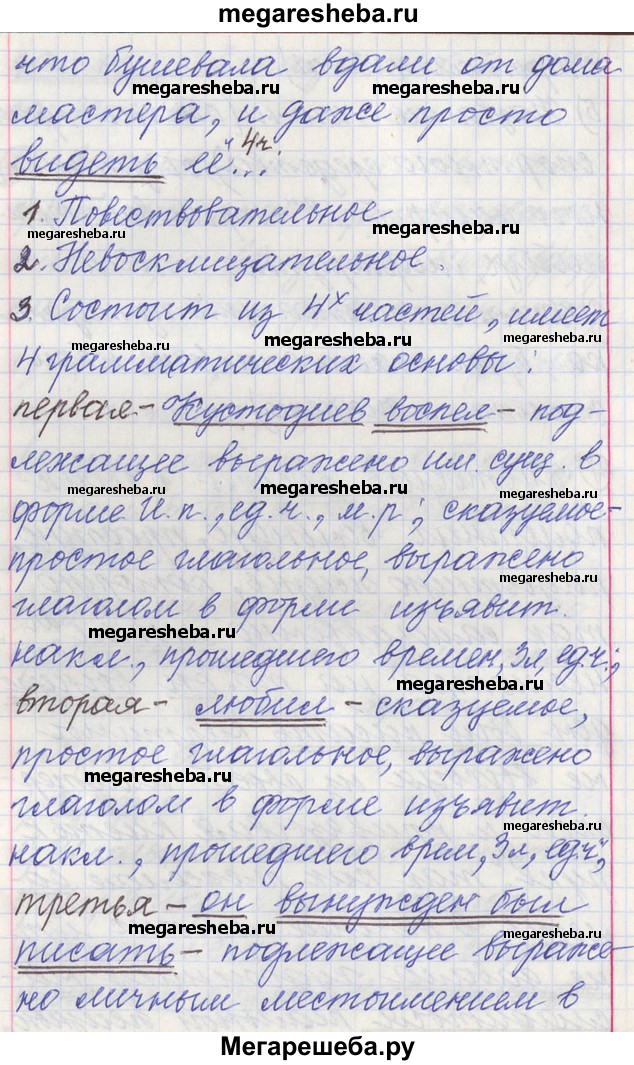 megaresheba.ru
что бушевала вдали от дома
megaresheba.ru megaresheba.ru
мастера, и даже просто
видеть её...⁴ч
1. Повествовательное
megaresheba.ru megaresheba.ru
2. Невосклицательное.
3. Состоит из 4х частей, имеет
megaresheba.ru megaresheba.ru
4 грамматических основы:
первая - Кустодиев воспел - под-
лежащее выражено им. сущ. в
megaresheba.ru megaresheba.ru megaresheba.ru
форме И.п., ед.ч., м.р; сказуемое-
простое глагольное, выражено
megaresheba.ru
глаголом в форме изъявит.
megaresheba.ru
накл., прошедшего времен, 3л, ед.ч.;
megaresheba.ru
вторая - любил - сказуемое,
простое глагольное, выражено
megaresheba.ru
глаголом в форме изъявит.
megaresheba.ru
накл., прошедшего врем, 3л, ед.ч;
третья - он вынужден был
megaresheba.ru megaresheba.ru
писать - подлежащее выраже-
но личным местоимением в
Мегарешеба.ру